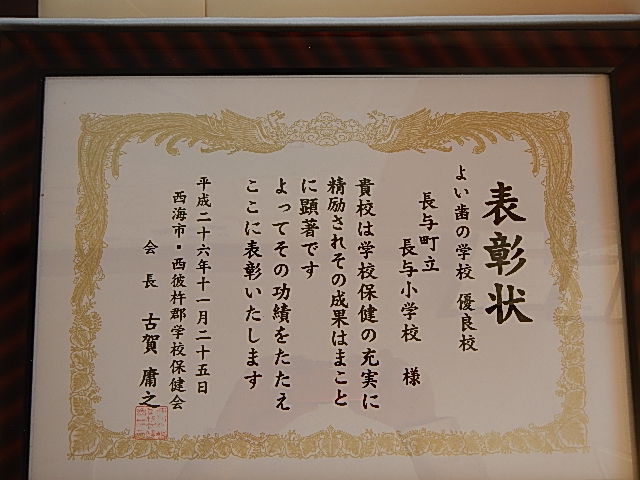 表彰状
よい歯の学校 優良校
長与町立
長与小学校 様
貴校は学校保健の充実に
精励されその成果はまこと
に顕著です
よってその功績をたたえ
ここに表彰いたします
平成二十六年十一月二十五日
西海市・西彼杵郡学校保健会
会長 古賀 庸之